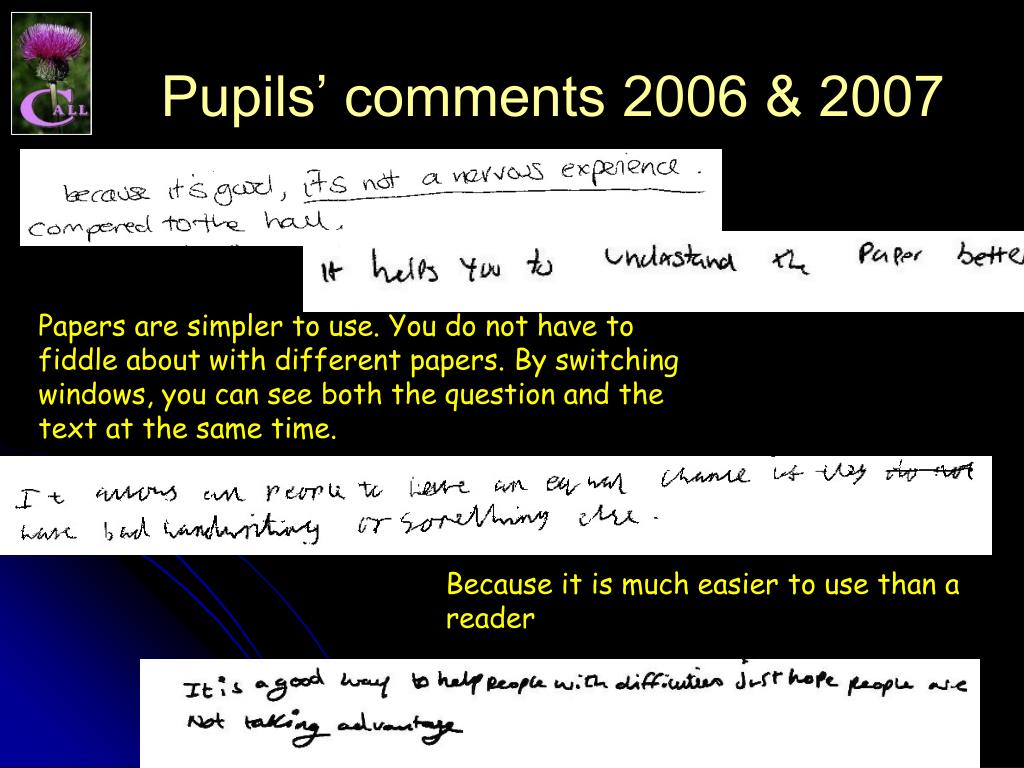 CALL
Pupils’ comments 2006 & 2007
because it's good, it's not a nervous experience.
compered to the hall.
It helps you to understand the Paper better
Papers are simpler to use. You do not have to
fiddle about with different papers. By switching
windows, you can see both the question and the
text at the same time.
It allows all people to have an equal chance if they do not
have bad handwriting or something else.
Because it is much easier to use than a
reader
It is a good way to help people with difficulties just hope people are
Not taking advantage